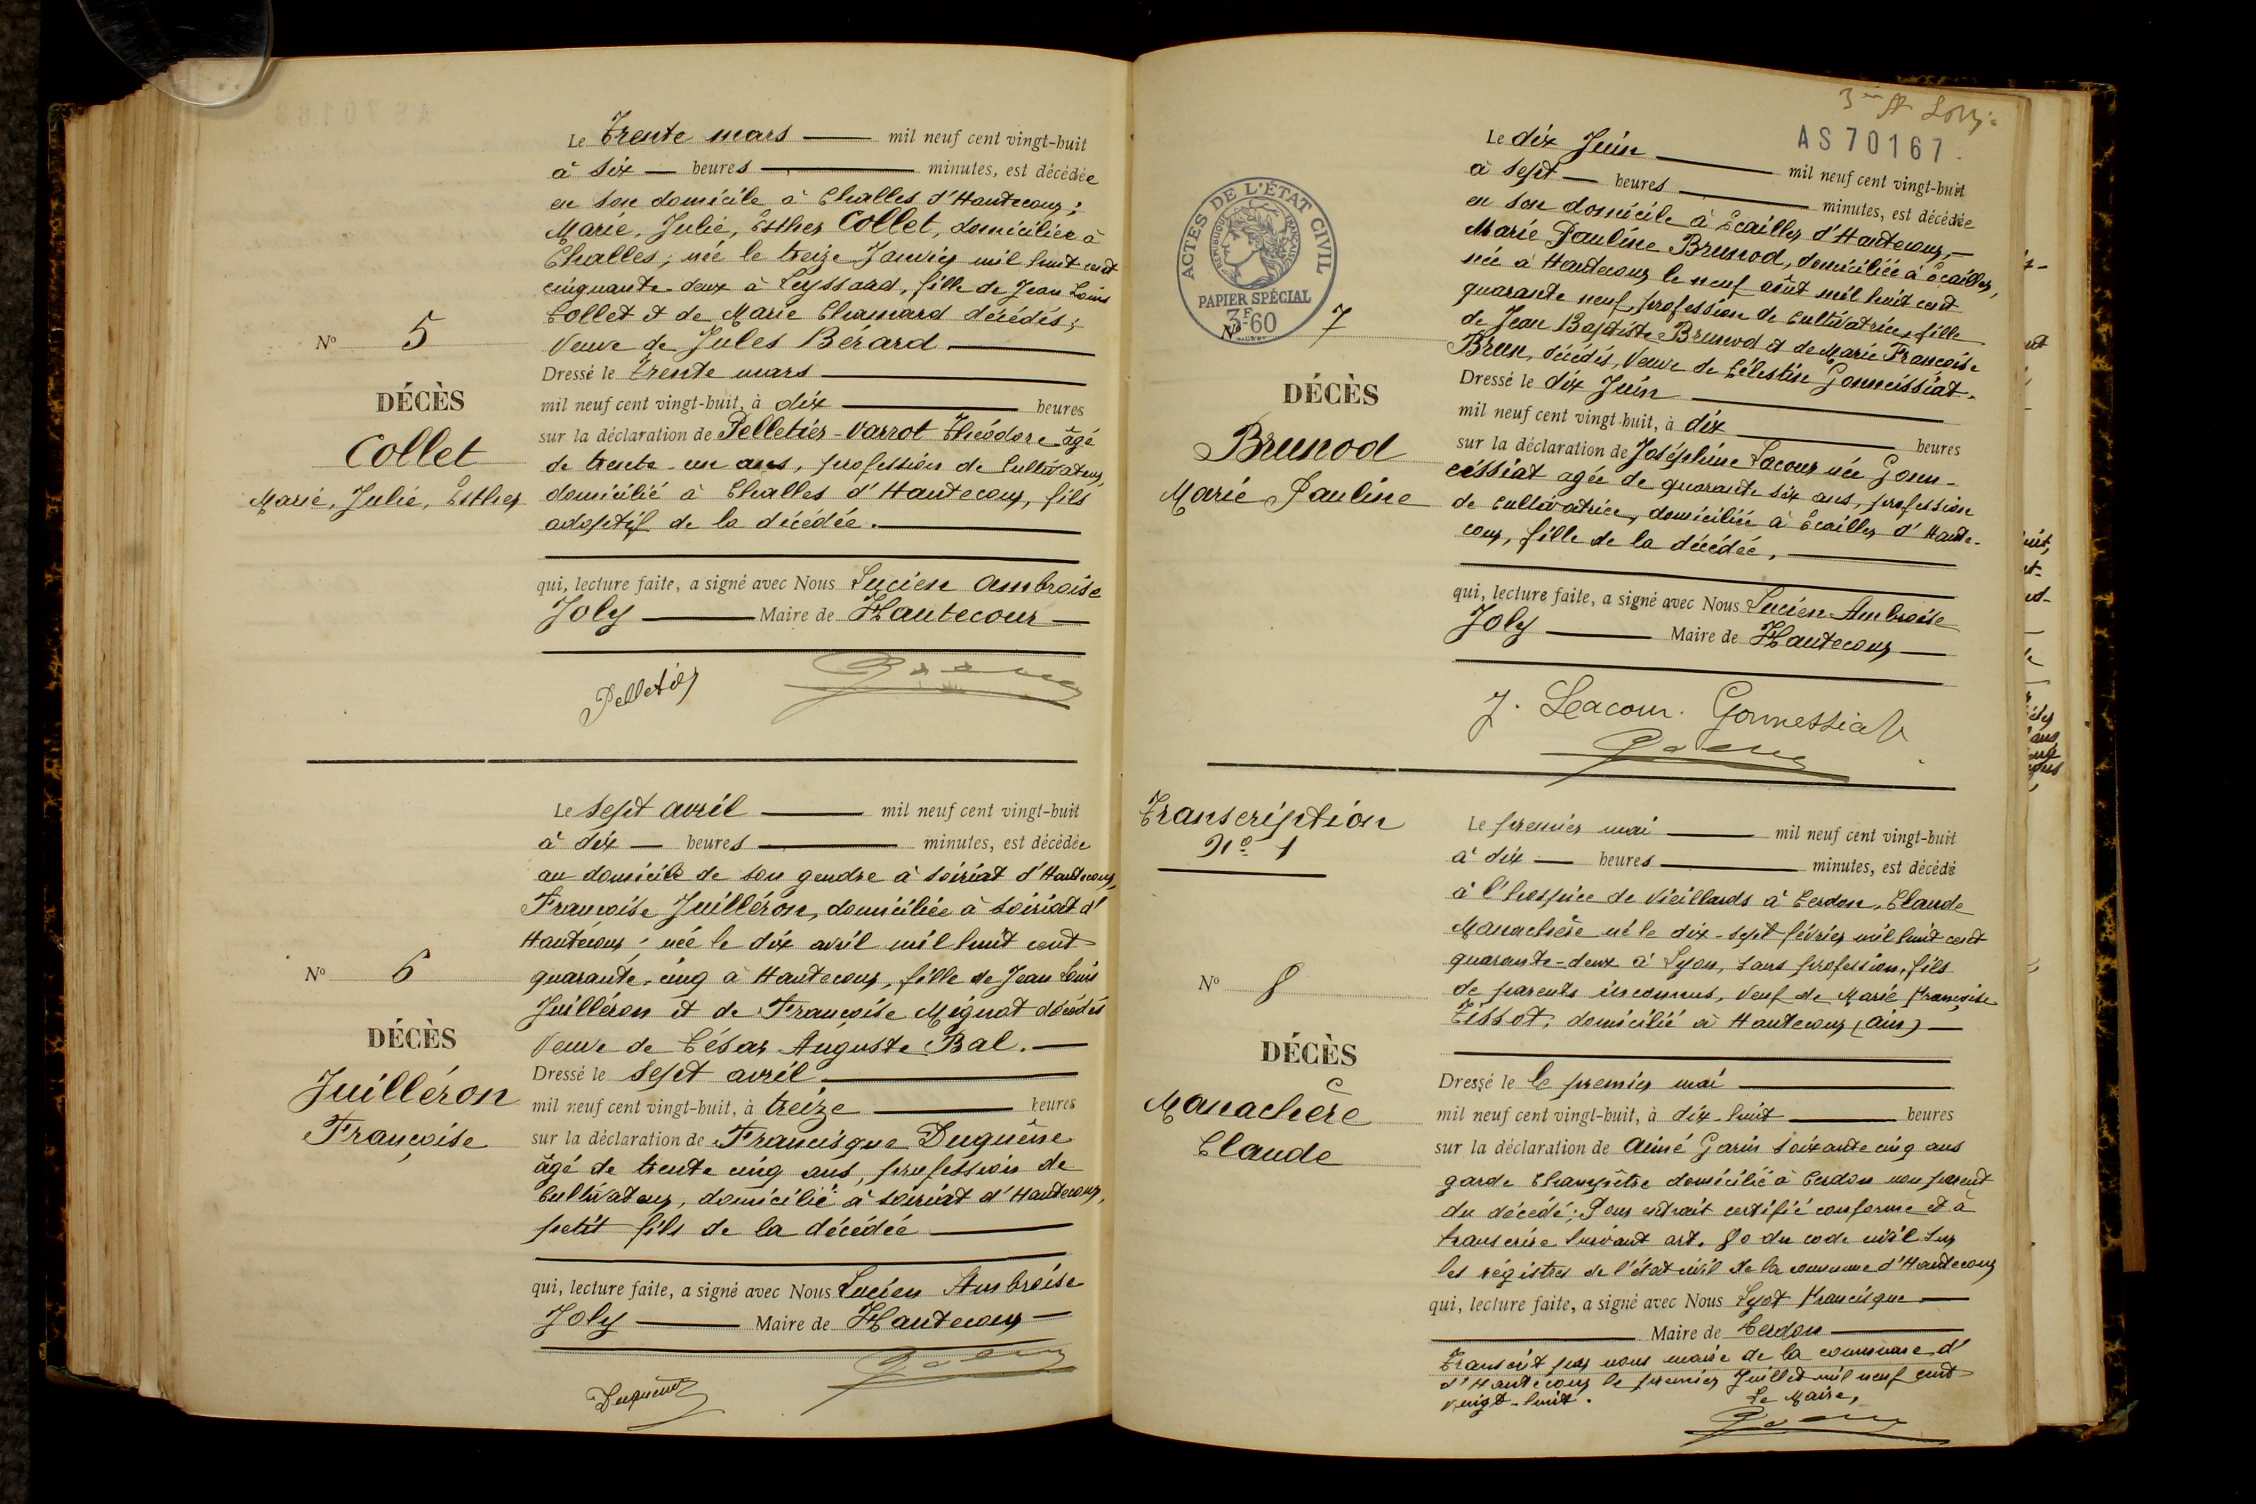 Le Trente mars mil neuf cent vingt-huit
à six heures minutes, est décédée
en son domicile à Challes d'Hautecour;
Marie, Julie, Esther Collet, domiciliée à
Challes; née le treize Janvier mil huit cent
cinquante-deux à Leyssard, fille de Jean Louis
Collet et de Marie Chanard décédés;
Veuve de Jules Bérard
Nº 5
DÉCÈS
Collet
Marie, Julie, Esther
Dressé le Trente mars
mil neuf cent vingt-huit, à dix heures
sur la déclaration de Pelletier-Varrot Théodore âgé
de trente-un ans, profession de Cultivateur,
domicilié à Challes d'Hautecour, fils
adoptif de la décédée.
qui, lecture faite, a signé avec Nous Lucien Ambroise
Joly Maire de Hautecour
Pelletier
Le sept avril mil neuf cent vingt-huit
à dix heures minutes, est décédée
au domicile de son gendre à Soiriat d'Hautecour,
Françoise Juilléron, domiciliée à Soiriat d'
Hautecour; née le dix avril mil huit cent
quarante-cinq à Hautecour, fille de Jean Louis
Juilléron et de Françoise Mignot décédés
Veuve de César Auguste Bal.
Nº 6
DÉCÈS
Juilléron
Françoise
Dressé le sept avril
mil neuf cent vingt-huit, à treize heures
sur la déclaration de Francisque Duquêne
âgé de trente cinq ans, profession de
Cultivateur, domicilié à Soiriat d'Hautecour,
petit fils de la décédée
qui, lecture faite, a signé avec Nous Lucien Ambroise
Joly Maire de Hautecour
AS 70167
ACTES DE L'ÉTAT CIVIL
RÉPUBLIQUE FRANÇAISE
PAPIER SPÉCIAL
3F60
Le dix Juin mil neuf cent vingt-huit
à sept heures minutes, est décédée
en son domicile à Écailles d'Hautecour,
Marie Pauline Brunod, domiciliée à Écailles,
née à Hautecour le neuf août mil huit cent
quarante neuf, profession de Cultivatrice, fille
de Jean Baptiste Brunod et de Marie Françoise
Brun, décédés, Veuve de Célestin Gonnessiat.
Nº 7
DÉCÈS
Brunod
Marie Pauline
Dressé le dix Juin
mil neuf cent vingt-huit, à dix heures
sur la déclaration de Joséphine Lacour née Gonn-
essiat agée de quarante six ans, profession
de Cultivatrice, domiciliée à Écailles d'Haute-
cour, fille de la décédée,
qui, lecture faite, a signé avec Nous Lucien Ambroise
Joly Maire de Hautecour
J. Lacour. Gonnessiat
Transcription
Nº 1
Le premier mai mil neuf cent vingt-huit
à dix heures minutes, est décédé
à l'hospice de Vieillards à Cerdon, Claude
Manachère né le dix-sept février mil huit cent
quarante-deux à Lyon, sans profession, fils
de parents inconnus, Veuf de Marie Françoise
Tissot, domicilié à Hautecour (Ain)
Nº 8
DÉCÈS
Manachère
Claude
Dressé le le premier mai
mil neuf cent vingt-huit, à dix-huit heures
sur la déclaration de Aimé Garin soixante cinq ans
garde Champêtre domicilié à Cerdon non parent
du décédé; Pour extrait certifié conforme et à
transcrire suivant art. 80 du code civil sur
les régistres de l'état civil de la commune d'Hautecour
qui, lecture faite, a signé avec Nous Lyot Francisque
Maire de Cerdon
Transcrit par nous maire de la commune d'
d'Hautecour le premier Juillet mil neuf cent
vingt-huit.
Le Maire,